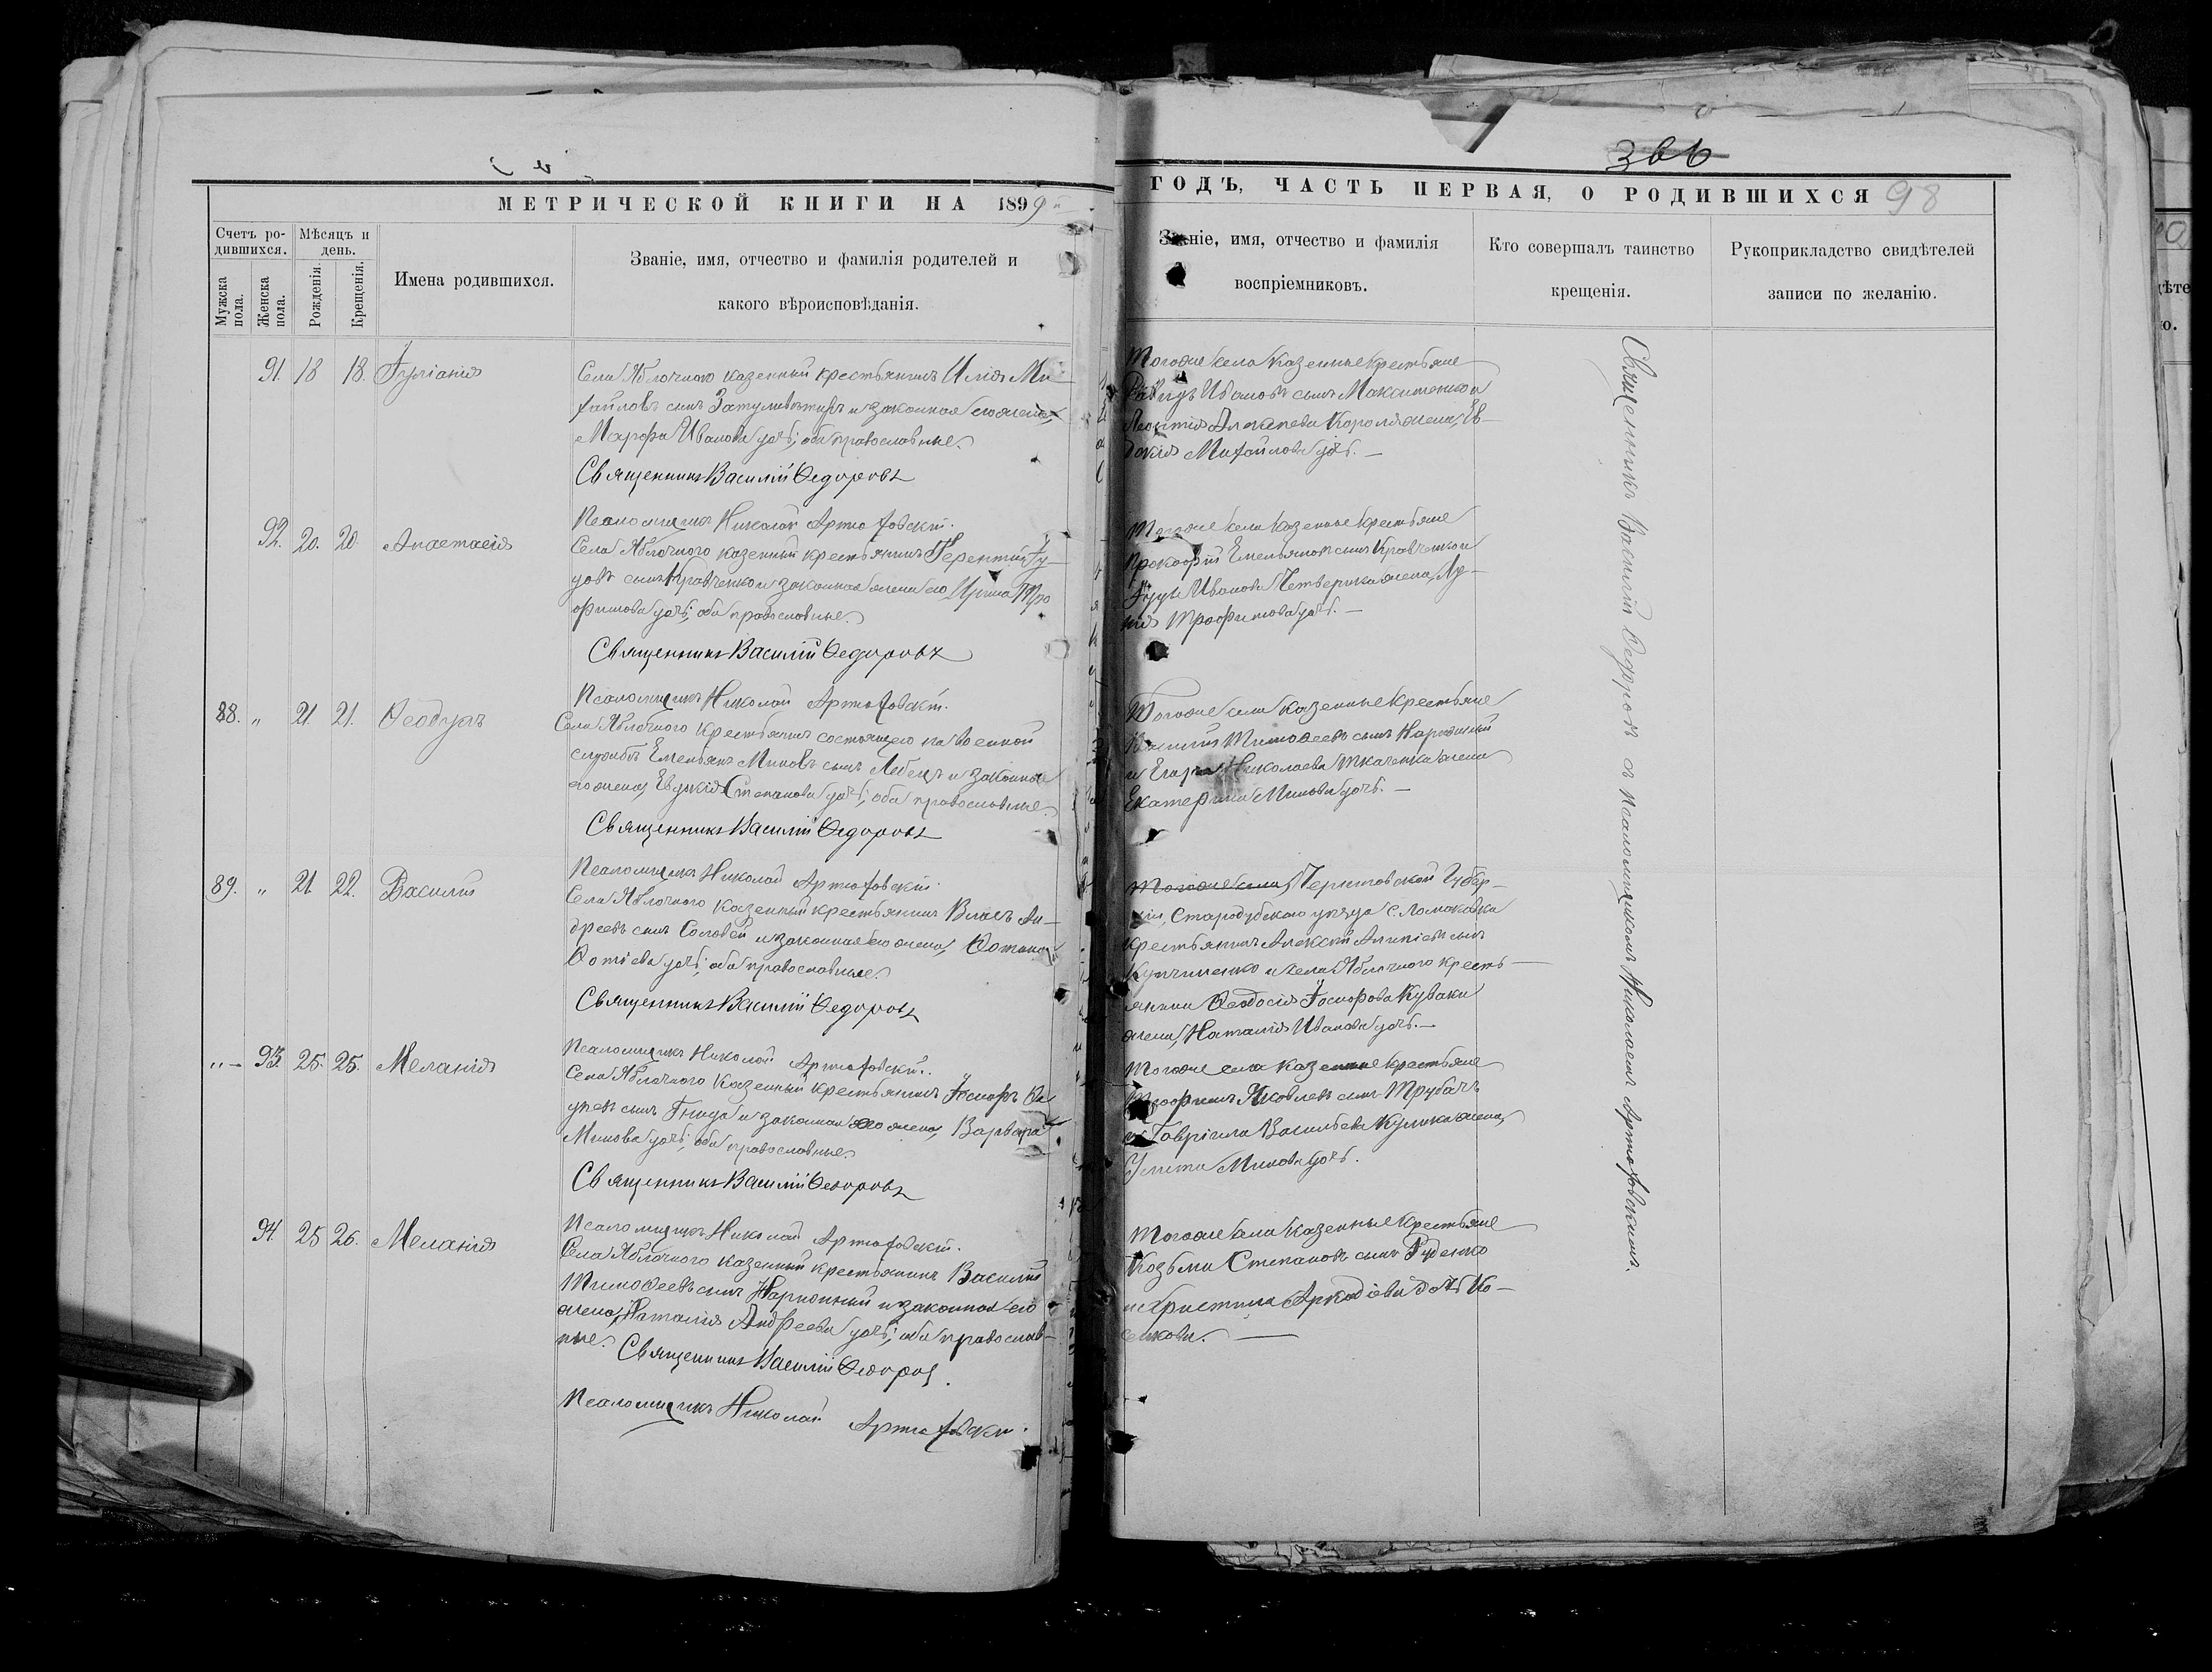 366
МЕТРИЧЕСКОЙ КНИГИ НА 1899
ГОДЪ, ЧАСТЬ ПЕРВАЯ, О РОДИВШИХСЯ 98
Счетъ ро-
дившихся.
Мѣсяцъ и
день.
Мужска
пола.
Женска
пола.
Рожденія.
Крещенія.
Имена родившихся.
Званіе, имя, отчество и фамилія родителей и
какого вѣроисповѣданія.
Званіе, имя, отчество и фамилія
воспріемниковъ.
Кто совершалъ таинство
крещенія.
Рукоприкладство свидѣтелей
записи по желанію.
91. 18 18. Іуліанія
Села Яблочного казенный крестьянинъ Илія Ми-
хайловъ сынъ и законная его жена,
Марфа Иванова дочь; оба православные.
Священникъ Василій Ѳедоровъ
Псаломщикъ Николай Артюховскій.
Тогоже села казенные крестьяне
Давидъ Ивановъ сынъ Максименко и
Леонтія Короля жена, Ев-
докія Михайлова дочь. —
92. 20. 20. Анастасія
Села Яблочного казенный крестьянинъ Терентій Гу-
рьевъ сынъ Кравченко и законная жена его Ирина Тро
фимова дочь; оба православные.
Священникъ Василій Ѳедоровъ
Псаломщикъ Николай Артюховскій.
Тогоже села казенные крестьяне
Прокофій Емельяновъ сынъ Кравченко и
Иванова Четверика жена,
Трофимова дочь. —
88. " 21. 21. Ѳеодулъ
Села Яблочного крестьянинъ состоящего на военной
службѣ Емельянъ Миновъ сынъ Лебедь и законная
его жена, Евдокія Степанова дочь; оба православные.
Священникъ Василій Ѳедоровъ
Псаломщикъ Николай Артюховскій.
Тогоже села казенные крестьяне
Василій Тимоѳеевъ сынъ Нарожный
и Егора Николаева Ткаченка жена
Екатерина Минова дочь. —
89. " 21. 22. Василій
Села Яблочного казенный крестьянинъ Власъ Ан-
дреевъ сынъ Соловей и законная его жена,
Ѳотіева дочь; оба православные.
Священникъ Василій Ѳедоровъ
Псаломщикъ Николай Артюховскій.
Тогоже села Черниговской Губер-
ніи, Стародубскаго уѣзда с. Ломаковки
крестьянинъ Алексѣй Алипіевъ сынъ
и села Яблочного кресть-
янина Ѳеодосія Іосифова Куваки
жена, Наталія Иванова дочь. —
" — 93. 25. 25. Меланія
Села Яблочного казенный крестьянинъ Іосифъ
сынъ Гнида и законная его жена, Варвара
Минова дочь; оба православные.
Священникъ Василій Ѳедоровъ
Псаломщикъ Николай Артюховскій.
Тогоже села казенные крестьяне
Трофимъ Яковлевъ сынъ Трубачъ
и Гавріила Васильева Кулика жена,
Улита Минова дочь.
94. 25 26. Меланія
Села Яблочного казенный крестьянинъ Василій
Тимоѳеевъ сынъ Нарожный и законная его
жена, Наталія Андреева дочь; оба православ-
ные. Священникъ Василій Ѳедоровъ
Псаломщикъ Николай Артюховскій.
Тогоже села казенные крестьяне
Козьма Степановъ сынъ Руденко
и Христина Аркадіева дочь Ко-
Священникъ Василій Ѳедоровъ съ Псаломщикомъ Николаемъ Артюховскимъ.